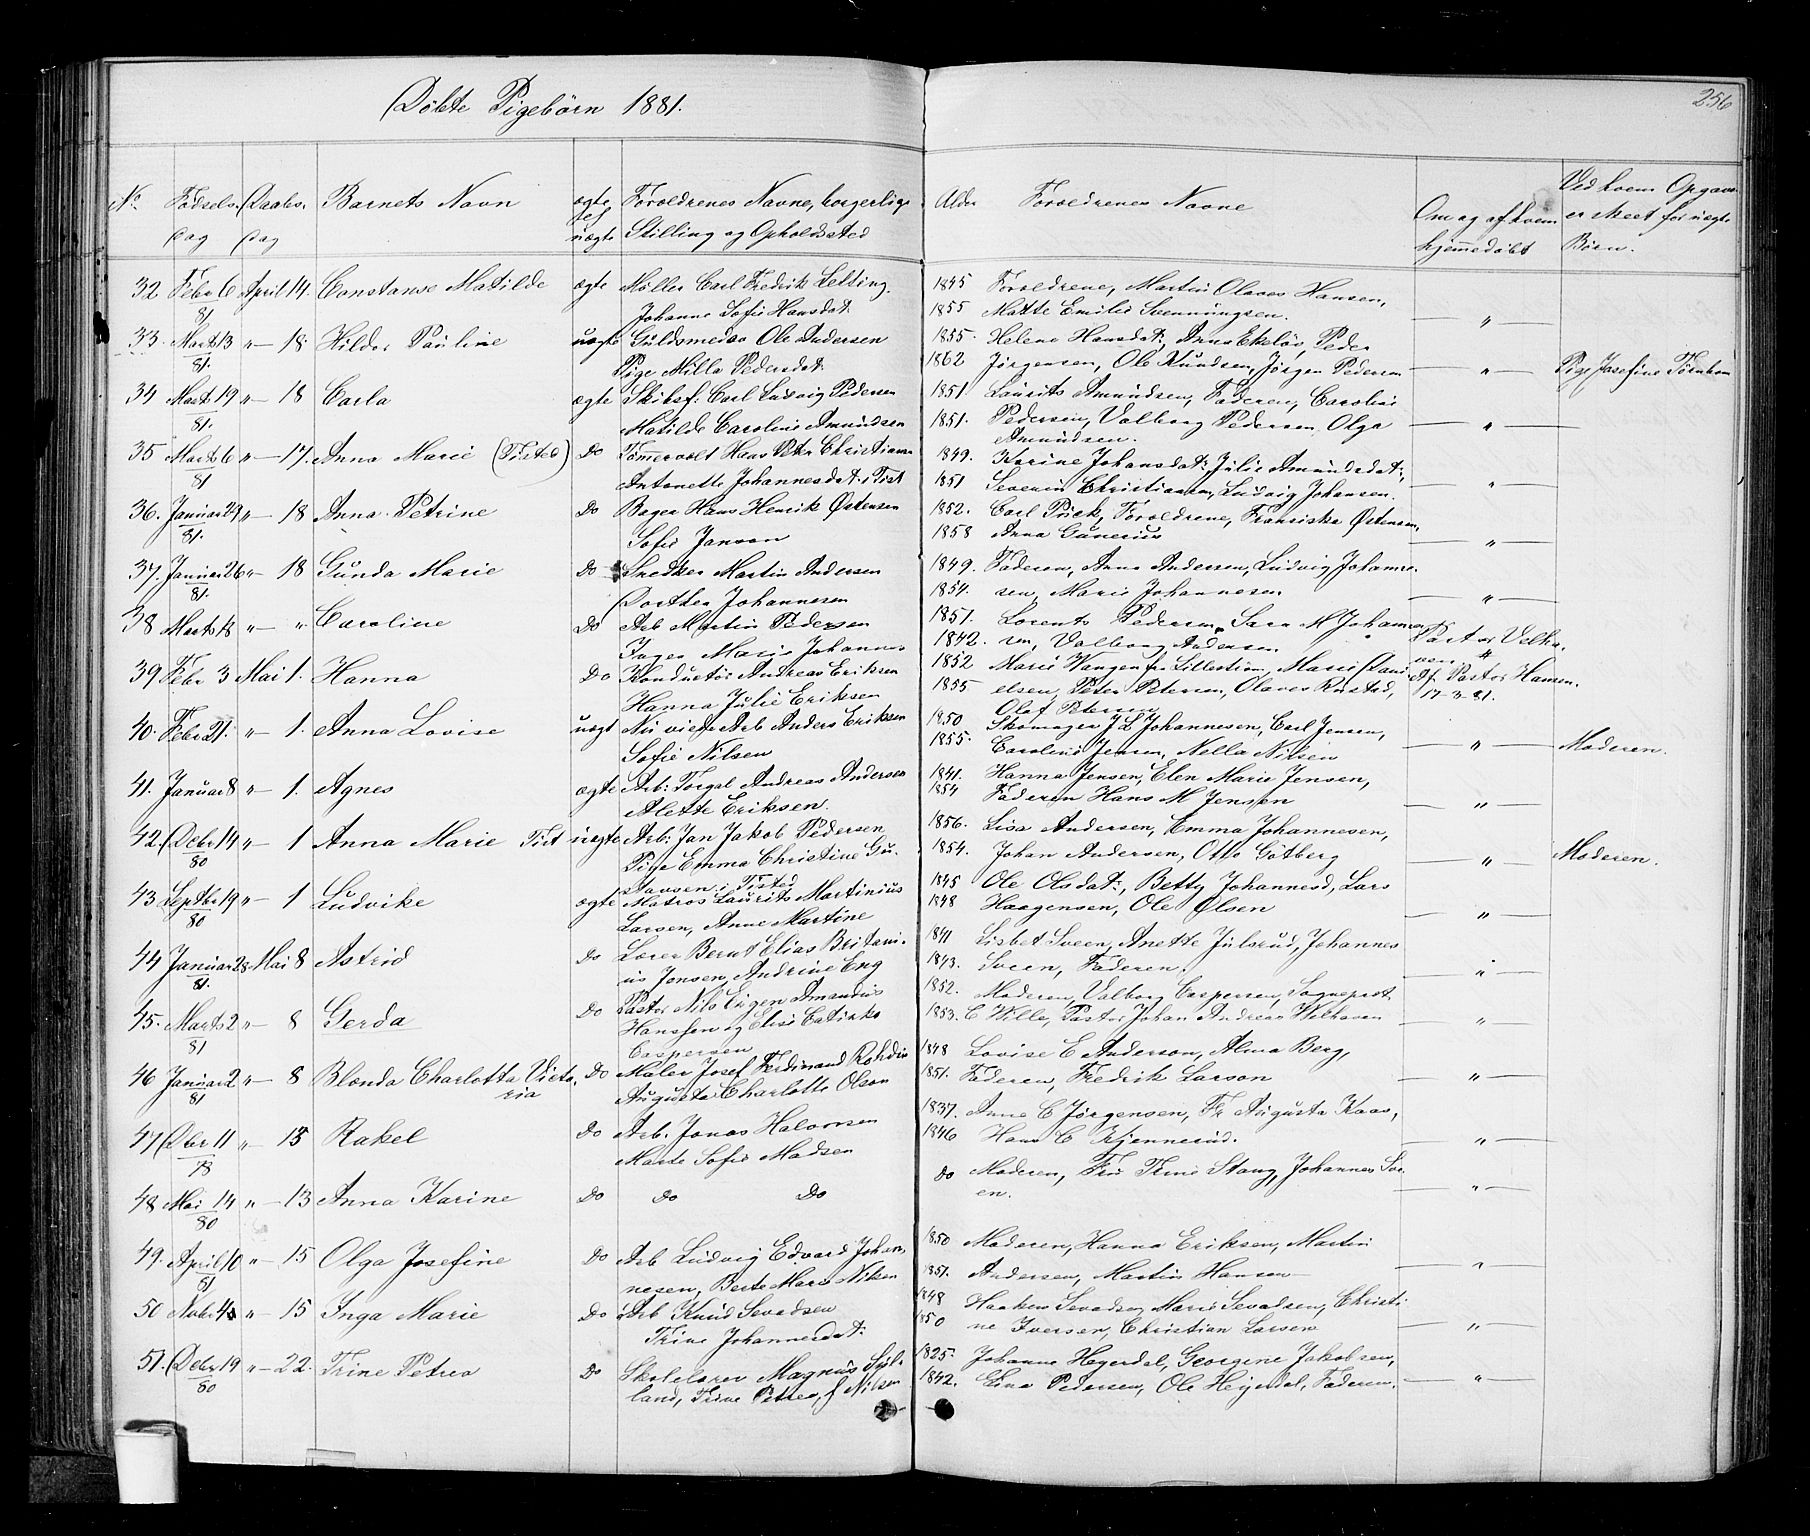 Døbte Pigebørn 1881.
256
No. Fødsels Daabs. Barnets Navn ægte Forældrenes Navne, borgerlige Alder Forældrenes Navne Om og af hvem Ved hvem Opgave
dag dag el. uægte Stilling og Opholdssted hjemmedøbt er skeet for uægte Børn.
32 Febr 6 April 14. Constanse Matilde ægte Møller Carl Fredrik Letting. 1845 Forældrene, Martin Olaves Hansen,
81 Johanne Sofie Hansdat: 1855 Matte Emilie Svenningsen. — " —
33. Marts 13 " — 18. Hilda Pauline uægte Guldsmedsv Ole Andersen 1855. Helene Hansdat:, Peder
81. Pige Milla Pedersdat: 1862 Jørgensen, Ole Knudsen, Jørgen Pedersen — " — Pige Josefine
34 Marts 19 " — 18 Carla ægte Skibsf: Carl Ludvig Pedersen 1851 Laurits Amundsen, Faderen, Caroline
81. Matilde Caroline Amundsen 1851. Pedersen, Valborg Pedersen, Olga — " —
Amundsen.
35 Marts 6 " — 17. Anna Marie (Tisted) Do Hans Peter Christians 1849. Karine Johansdat: Julie Amundsdat:,
81 Antonette Johannesdat: i Tist 1851 Severin Christiansen, Ludvig Johansen. — " —
36. Januar 29 " — 18 Anna Petrine Do Bager Hans Henrik Østensen 1852. Carl Prick, Forældrene, Fransiska Østensen,
81. Sofie Janson 1858 Anna Gunerius — " —
37. Januar 26 " — 18 Gunda Marie Do Snedker Martin Andersen 1849. Faderen, Anna Andersen, Ludvig Johanne-
81. Dorthea Johannesen 1854. sen, Marie Johannesen. — " —
38 Marts 18 " — " Caroline Do Arb Martin Pedersen 1851. Lorents Pedersen, Sara M Johannes
Inger Marie Johannes 1842. sen, Valborg Andersen. Pastor Velha
ven "
39 Febr 3 Mai 1. Hanna Do Konduetør Andreas Eriksen 1852 Marie Wangen fr Lillestrøm, Marie Dani Af Pastor Hansen.
Hanna Julie Eriksen 1855 elsen, Peter Petersen, Olaves Rustad, 17-3-81.
Olaf Petersen
40. Febr 21. " — 1. Anna Lovise uægt Nu viede Arb Anders Eriksen 1850 Skomager J L Johannesen, Carl Jensen,
Sofie Nilsen 1855. Caroline Jensen, Nella Nilsen — " — Moderen.
41. Januar 8 " — 1. Agnes ægte Arb: Torgal Andreas Andersen 1841. Hanna Jensen, Elen Marie Jensen,
Alette Eriksen. 1854 Faderen Hans M Jensen — " —
42. Debr 14 " — 1 Anna Marie Tist uegte Arb: Jan Jakob Pedersen 1856. Lisa Andersen, Emma Johannesen,
80 Pige Emma Christine Gu- 1854. Johan Andersen, Otto Gøtberg — " — Moderen.
stavsen i Tisted
43 Septbr 19 " — 1 Ludvike ægte Matros Laurits Martinius 1845 Ole Olsdat:, Betty Johannesd, Lars
80 Larsen, Anne Martine 1848 Haagensen, Ole Olsen — " —
44 Januar 28 Mai 8 Astrid Do Lærer Bernt Elias Britani- 1841 Lisbet Sveen, Anette Julsrud, Johannes
81. us Jensen, Andrine Eng 1843. Sveen, Faderen. — " —
45. Marts 2 " — 8 Gerda Do Pastor Nils Eigen Amandus 1852. Moderen, Valborg Caspersen, Sognepræst
81 Hanssen og Elise Catinka 1853. C Wille, Pastor Johan Andreas Welhaven — " —
Caspersen
46 Januar 2 " — 8 Blænda Charlotta Victo, Do Maler Josef Ferdinand Rohdin 1848 Lovise E Anderson, Alma Berg,
81 ria Augusta Charlotte Olson 1851. Faderen, Fredrik Larson — " —
47 Dbr 11 " — 13 Rakel Do Arb. Jonas Halvorsen 1837. Anne C Jørgensen, Fr Augusta Kaas,
78 Marte Sofie Madsen 1846 Hans C Kjennerud. — " —
48 Mai 14 " — 13 Anna Karine Do Do Do Do Moderen, Fru Trine Stang, Johannes Sve-
80 en. — " —
49. April 10 " — 15 Olga Josefine Do Arb Ludvig Edvard Johan, 1850 Moderen, Hanna Eriksen, Martin
81 nesen, Berte Marie Nilsen 1851. Andersen, Martin Hansen — " —
50 Nvbr " — 15 Inga Marie Do Arb Knud Sevadsen 1848 Haaken Sevadsen, Marie Sevalsen, Christi
Trine Johannesdat: 1850 ne Iversen, Christian Larsen — " —
51. Debr 19 " — 22. Trine Petrea Do Skolelærer Magnus Syl- 1825. Johanne Hegerdal, Georgine Jakobsen,
80 land, Trine Petrea, f Nilsen 1842. Lina Pedersen, Ole Hegerdal, Faderen. — " —